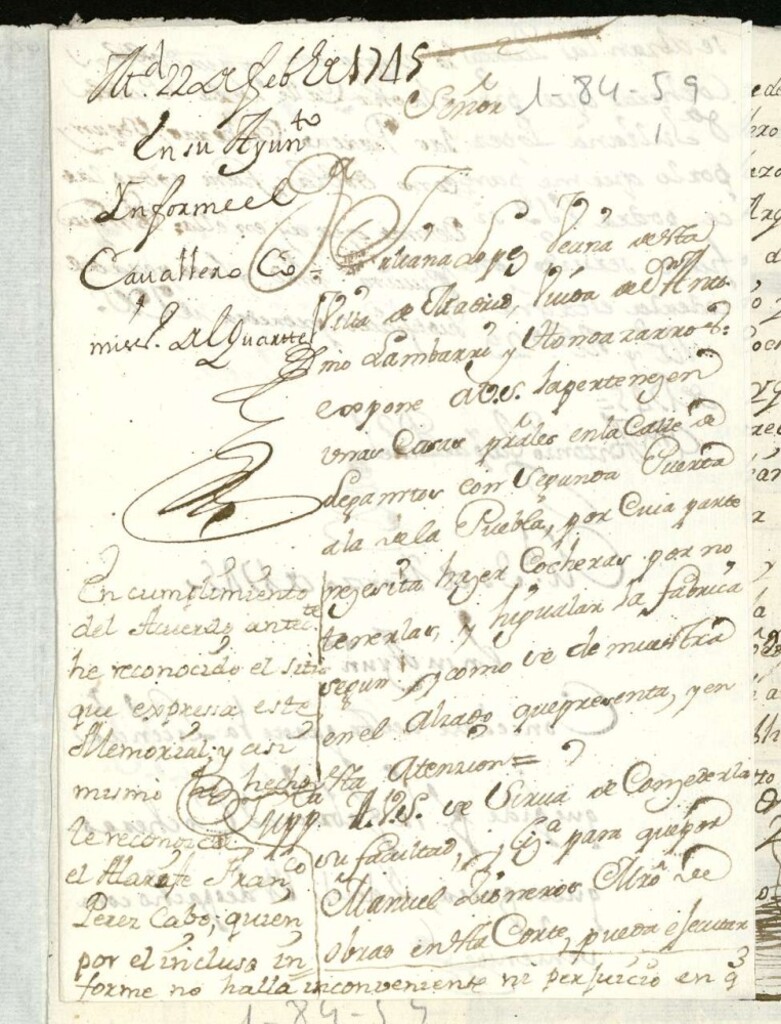 Md. 22 de Febº de 1745
En su Ayunto
Informe el
Cavallero Co=
miss.º del Quartel
Señor
1-84-59
1
Juliana Lopez Vezina de esta
Villa de Madrid, Viuda de Dn Anto
nio Lambarri y Mondazarros:
expone a V.S. la pertenezen
unas Casas prâles en la Calle de
Jepanitos con Segunda Puerta
a la de la Puebla, por Cuia parte
nezesita hazer Cocheras por no
tenerlas, y higualar la fabrica
segun y como se demuestra
en el Alzado que presenta, y en
esta Atenzion=
Suppca A V.S. se Sirva de Conzederla
su facultad, y Liza para que por
Manuel Mro de
obras en esta Corte, pueda ejecutar
En cumplimiento
del Acuerdo antecte
he reconocido el sitio
que expressa este
Memorial; y asi
mismo ha hecho
le reconozca
el Alarife Franco
Perez Cabo; quien
por el incluso in
forme no halla inconveniente ni perjuicio en q
1-84-59